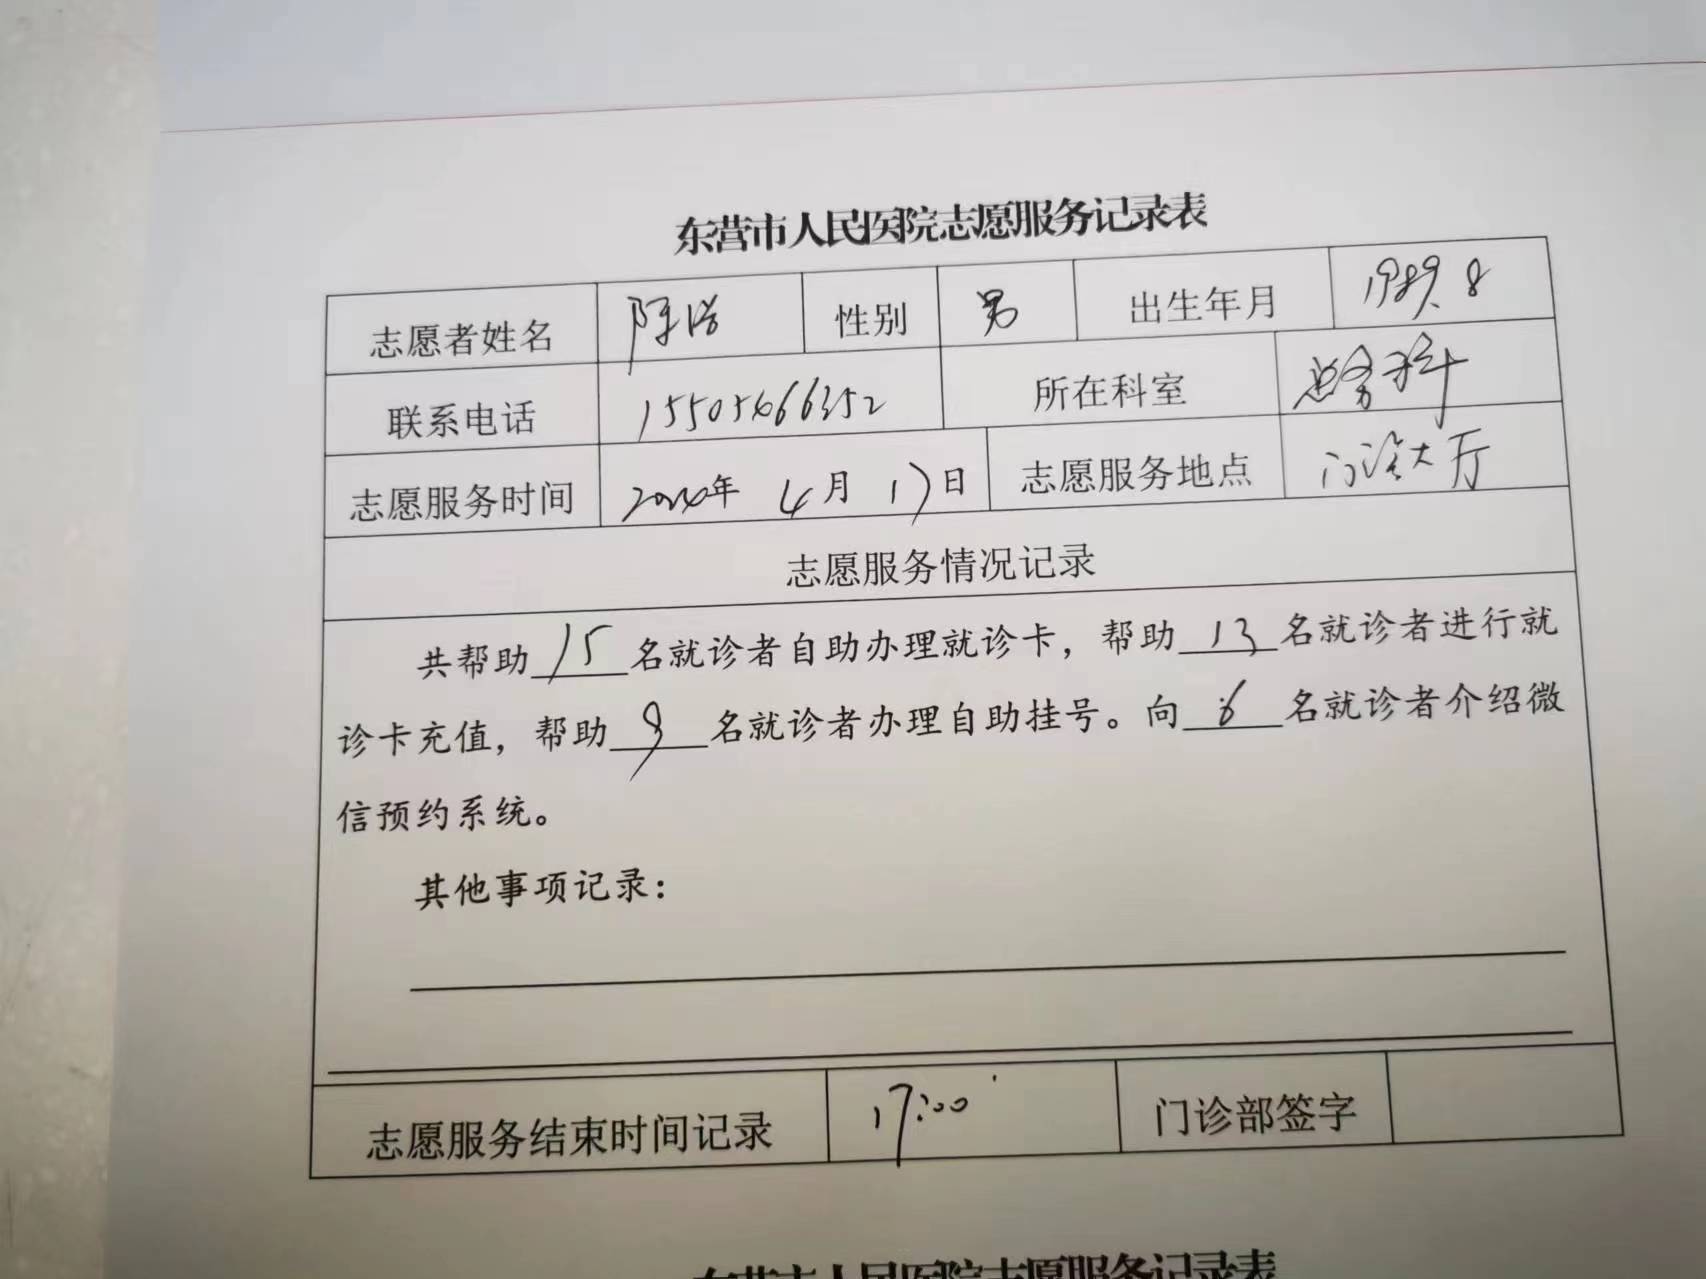 东营市人民医院志愿服务记录表
志愿者姓名 陈浩 性别 男 出生年月 1989.8
联系电话 15505466352 所在科室 总务科
志愿服务时间 年 4月 17日 志愿服务地点 门诊大厅
志愿服务情况记录
共帮助15名就诊者自助办理就诊卡，帮助13名就诊者进行就
诊卡充值，帮助9名就诊者办理自助挂号。向6名就诊者介绍微
信预约系统。
其他事项记录：
志愿服务结束时间记录 17:00 门诊部签字
东营市人民医院志愿服务记录表